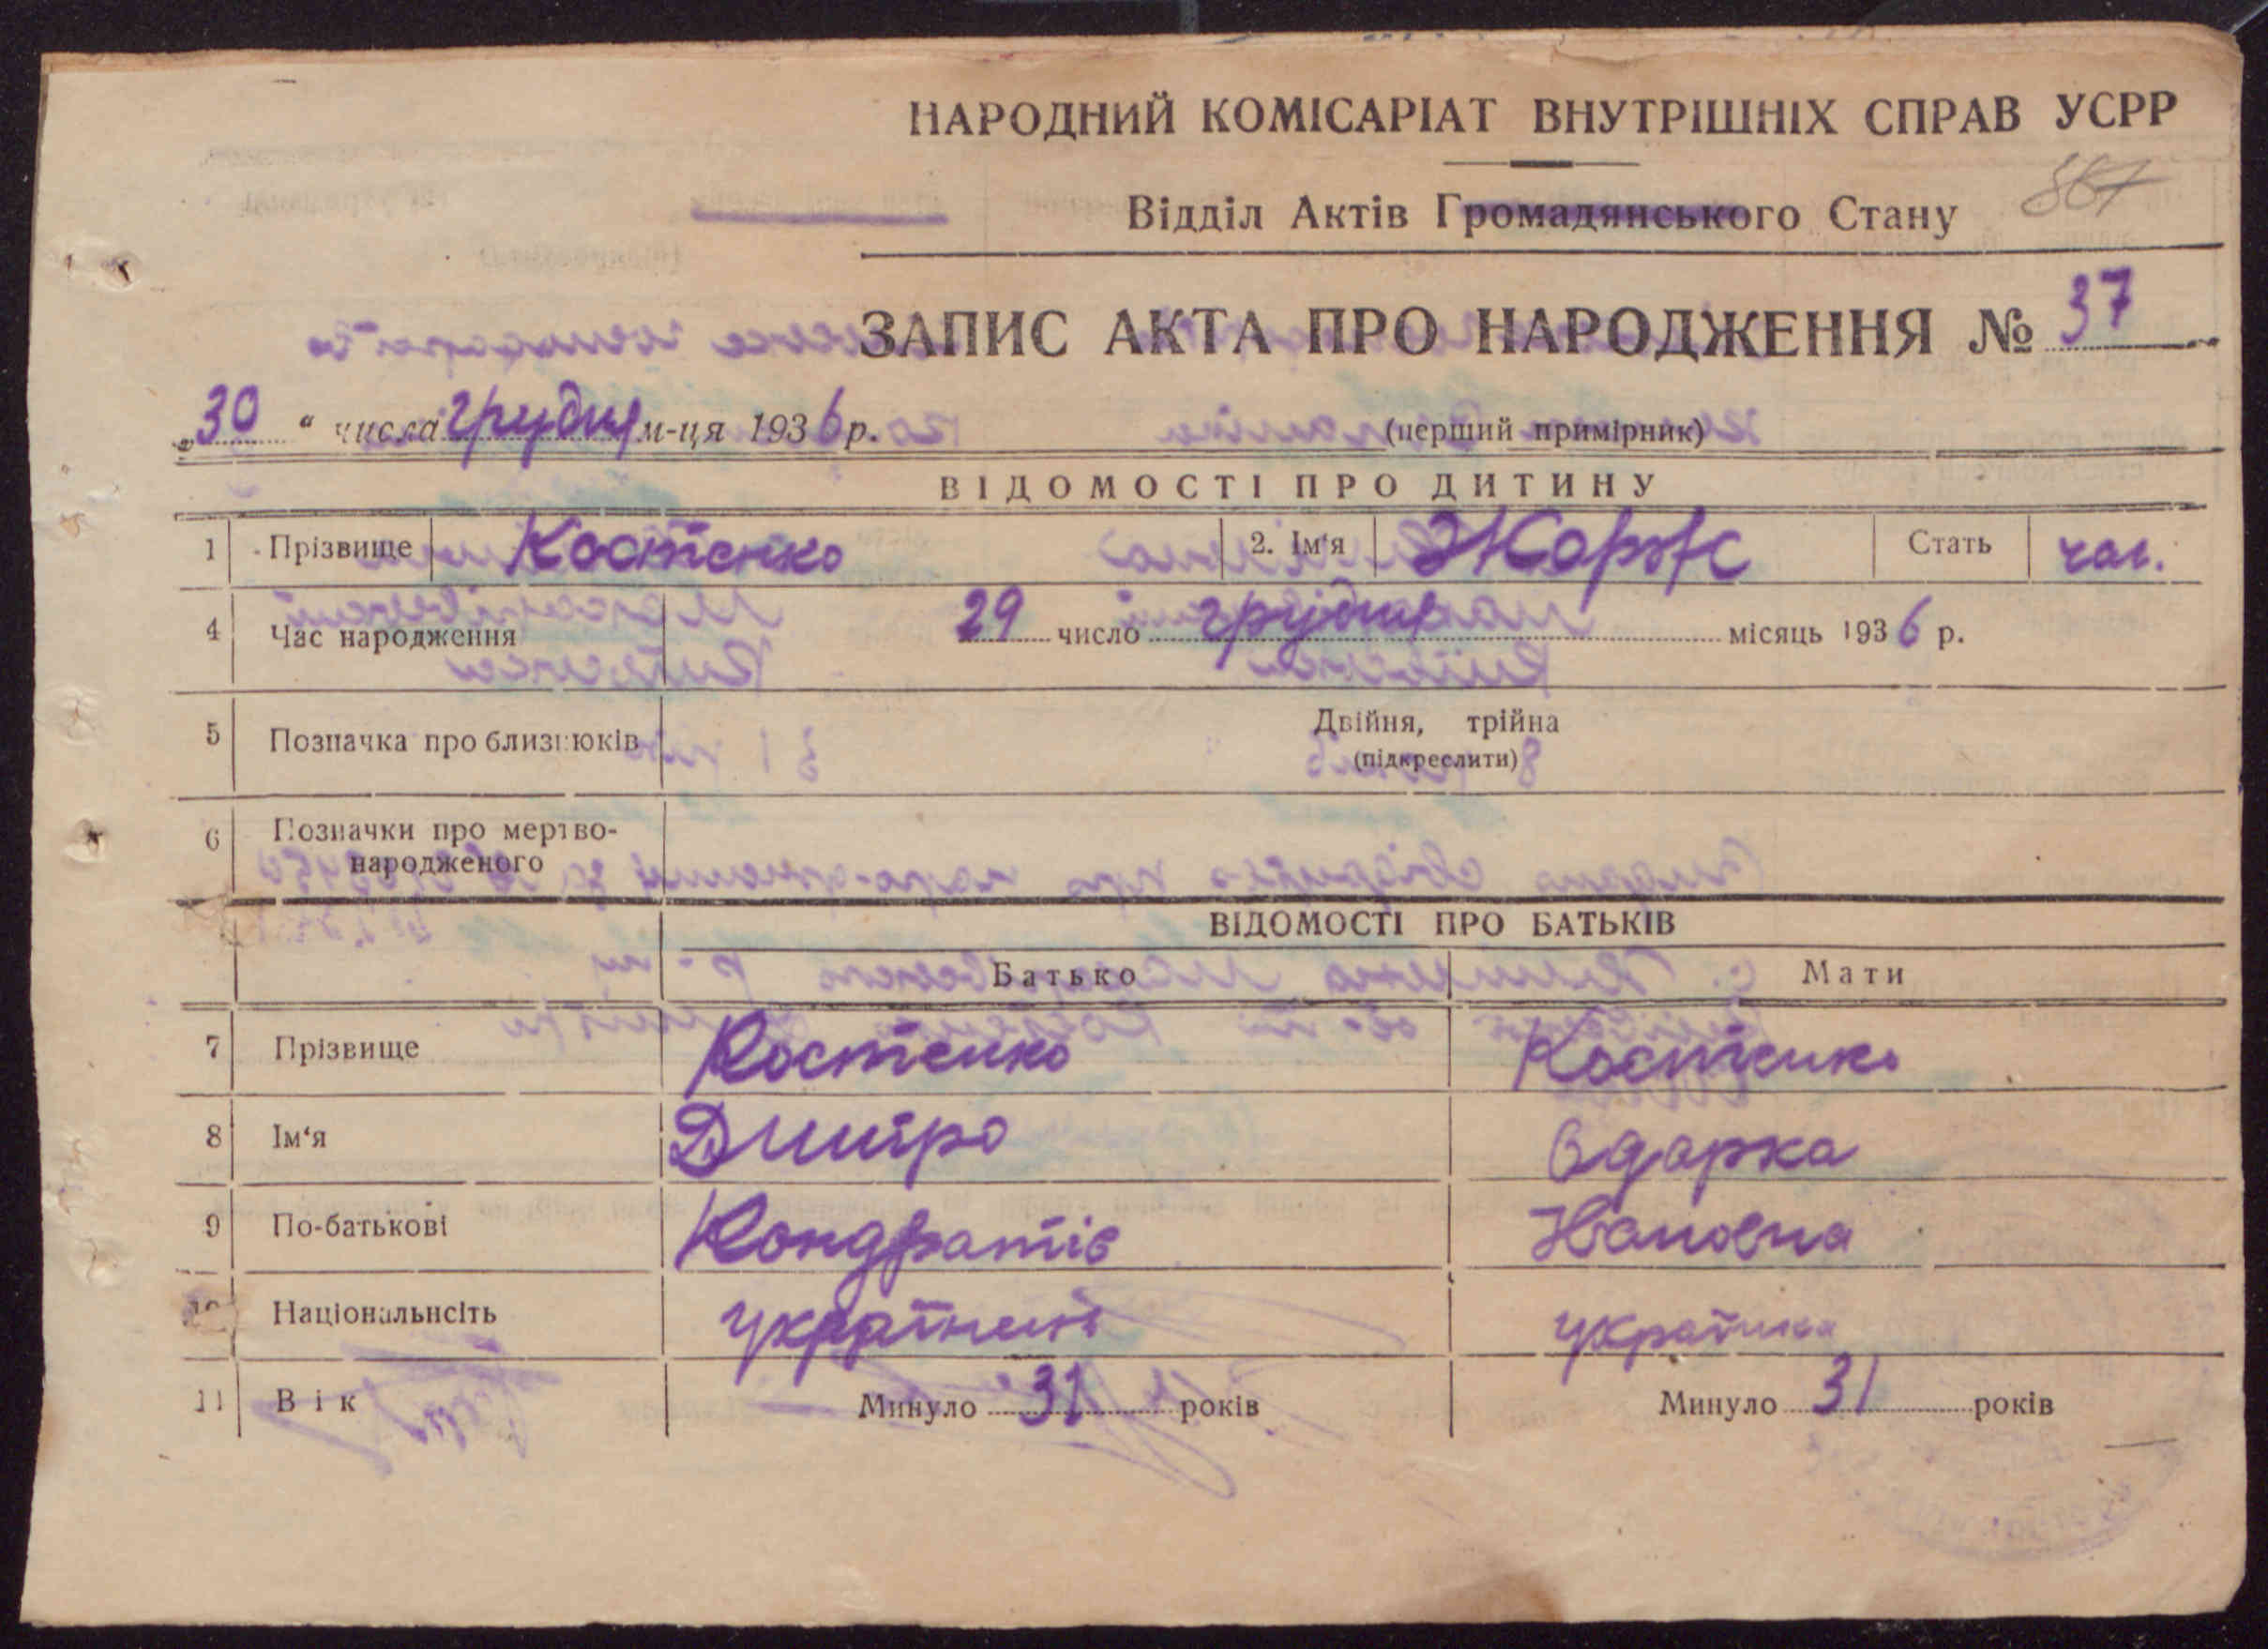 НАРОДНИЙ КОМІСАРІАТ ВНУТРІШНІХ СПРАВ УСРР
Відділ Актів Громадянського Стану
ЗАПИС АКТА ПРО НАРОДЖЕННЯ № 37
„30“ числа грудня м-ця 1936 р. (перший примірник)
ВІДОМОСТІ ПРО ДИТИНУ
1 Прізвище Костенко 2. Ім‘я Жорж Стать чол.
4 Час народження 29 число грудня місяць 1936 р.
5 Позначка про близнюків Двійня, трійна
(підкреслити)
6 Позначки про мертво-
народженого
ВІДОМОСТІ ПРО БАТЬКІВ
Батько Мати
7 Прізвище Костенко Костенко
8 Ім‘я Дмитро Одарка
9 По-батькові Кондратів
10 Національнсіть українець українка
11 Вік Минуло 31 років Минуло 31 років